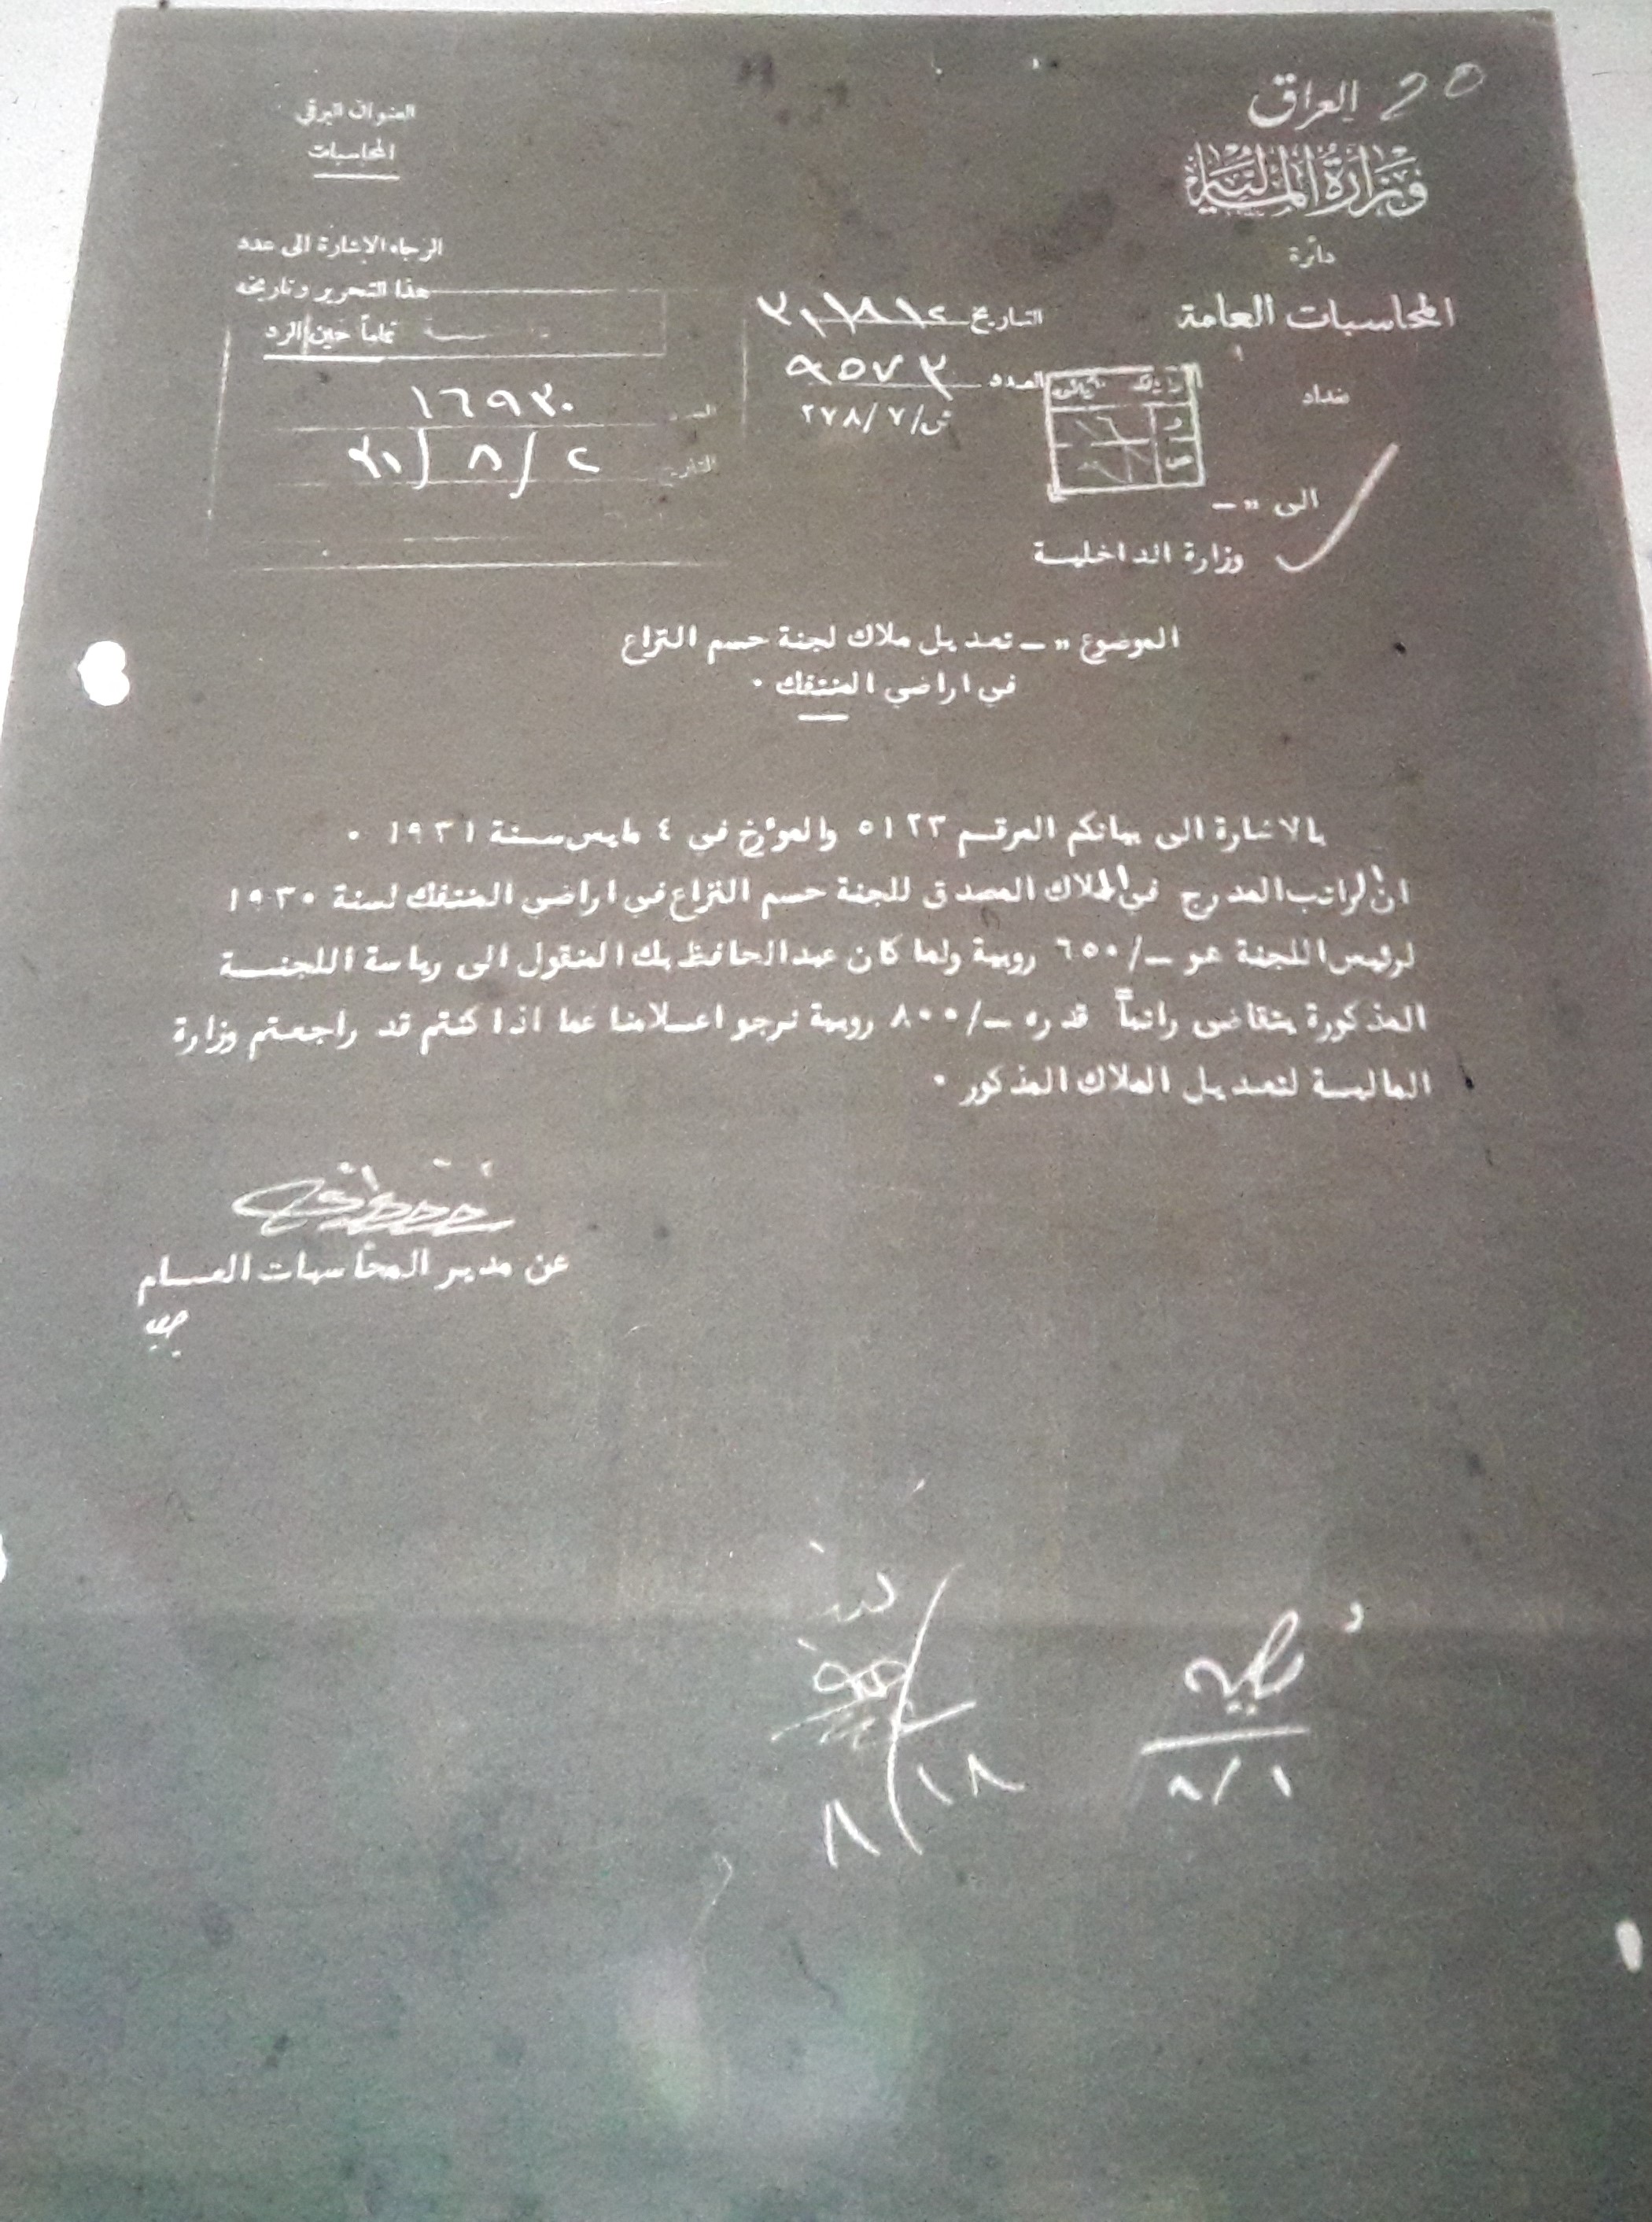 العراق
20
وزارة المالية
دائرة
المحاسبات العامة
بغداد
العنوان البرقي
المحاسبات
الرجاء الاشارة الى عدد
هذا التحرير وتاريخه
تماماً حين الرد
التاريخ ٣١/٨/٢
العدد ٩٥٧٣
ش/٢٧٨/٧
العدد ١٦٩٣٠
التاريخ ٢/٨/٣١
الى :-
وزارة الداخلية
الموضوع :- تعديل ملاك لجنة حسم النزاع
في اراضي المنتفك ٠
بالاشارة الى بيانكم المرقم ٥١٢٣ والمؤرخ في ٤ مايس سنة ١٩٣١ ٠
ان الراتب المدرج في الملاك المصدق للجنة حسم النزاع في اراضي المنتفك لسنة ١٩٣٠
لرئيس اللجنة هو -/٦٥٠ روبية ولما كان عبد الحافظ بك المنقول الى رياسة اللجنة
المذكورة يتقاضى راتباً قدره -/٨٠٠ روبية نرجو اعلامنا عما اذا كنتم قد راجعتم وزارة
المالية لتعديل الملاك المذكور ٠
عن مدير المحاسبات العام
٨/١
١٨/٨